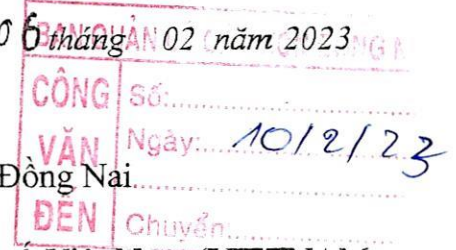 06 tháng 02 năm 2023
CÔNG VĂN ĐẾN
Số:
Ngày: 10/2/23
Chuyển:
Đồng Nai